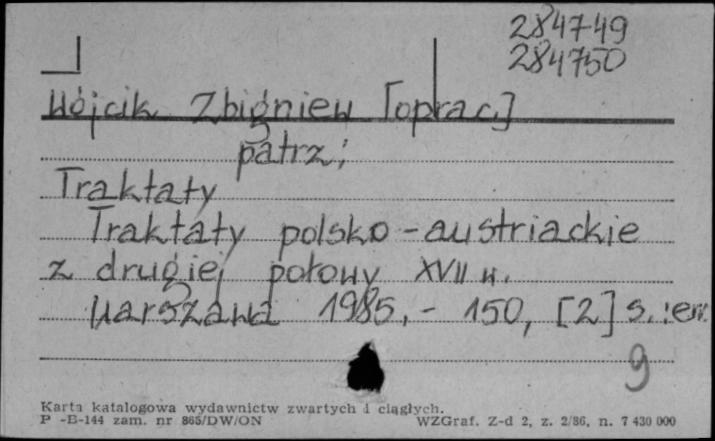 284749
284750
Wójcik Zbigniew [oprac.]
patrz:
Traktaty
Traktaty polsko-austriackie
z drugiej połowy XVII w.
Warszawa 1985.- 150, [2] s. :err.
9
Karta katalogowa wydawnictw zwartych i ciągłych.
P -B-144 zam. nr 865/DW/ON WZGraf. Z-d 2, z. 2/86, n. 7 430 000